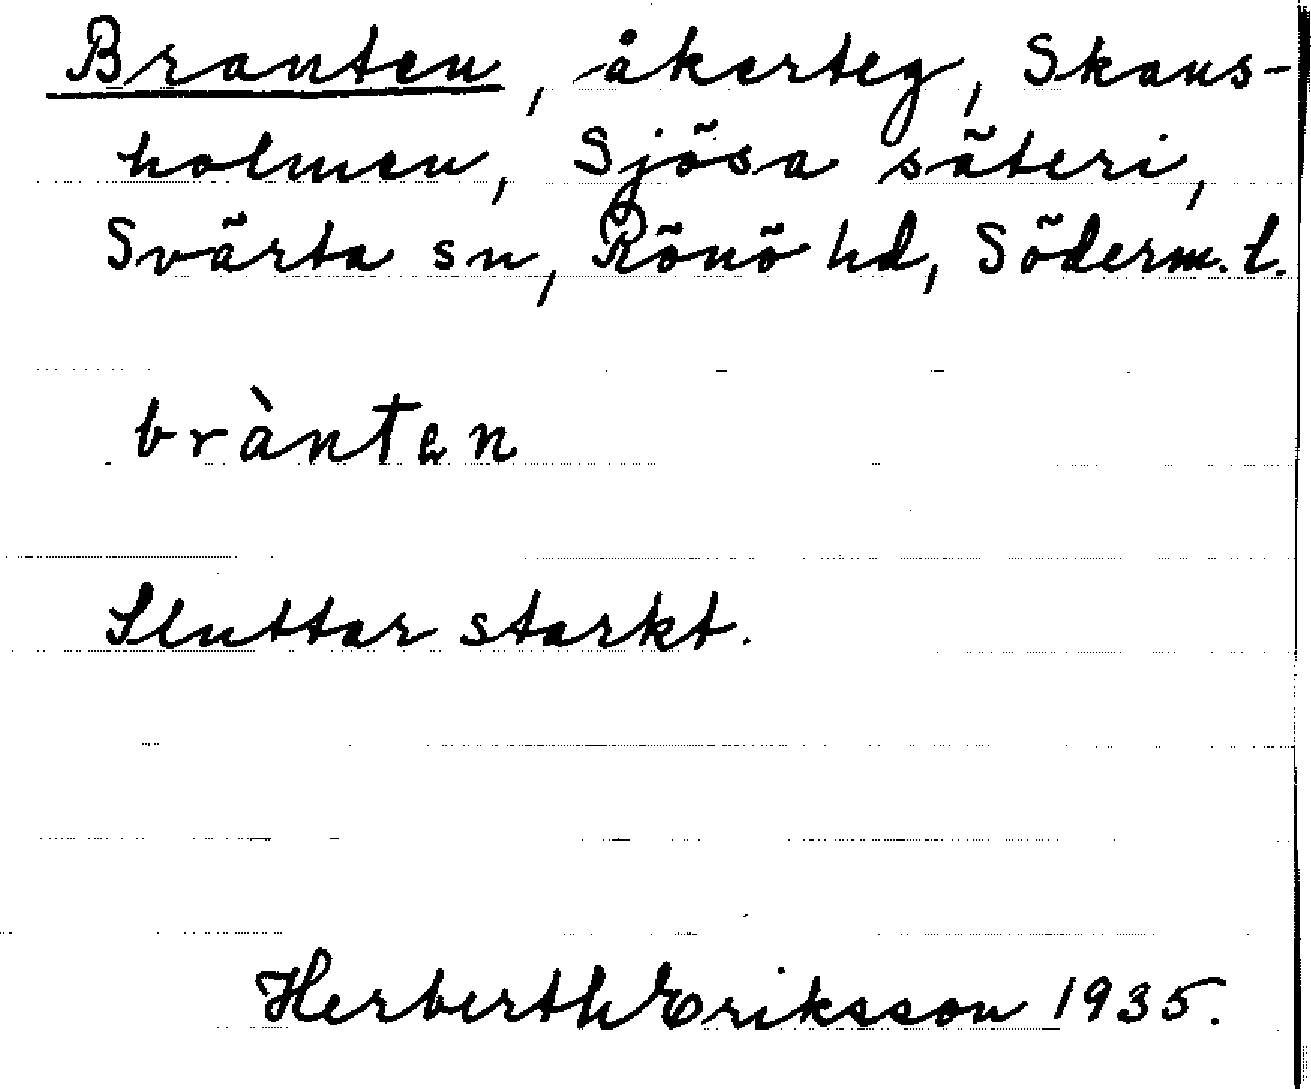 Branten, åkerteg, Skans-
holmen, Sjösa säteri,
Svärta sn, Rönö hd, Söderm. l.
brànten
Sluttar starkt.
Herberth Eriksson 1935.